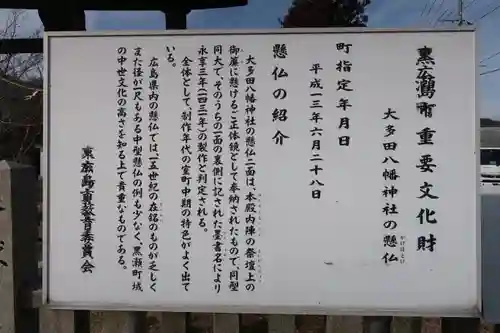 東広島市重要文化財
大多田八幡神社の懸仏
かけぼとけ
町指定年月日
平成一三年六月二十八日
懸仏の紹介
大多田八幡神社の懸仏二面は、本殿内陣の祭壇上の
御簾に懸けるご正体鏡として奉納されたもので、同型
同大で、そのうちの一面の裏側に記された墨書名により
永享三年(一四三一年)の製作と判定される。
全体として、制作年代の室町中期の特色がよく出て
いる。
広島県内の懸仏では一五世紀の在銘のものが乏しく
また径が一尺もある中型懸仏の例も少なく、黒瀬町域
の中世文化の高さを知る上で貴重なものである。
東広島市教育委員会